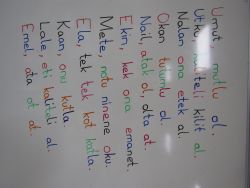 Umut mutlu ol.
Utku, kaliteli kilit al.
Nalan ona etek al.
Okan tutumlu ol.
Nail, atak ol olta at.
Ekin, kek ona emanet.
Mete, notu ninene oku.
Ela, tek tek kot katla.
Kaan, onu kutla.
Lale, eti al.
Emel, ata ot at.